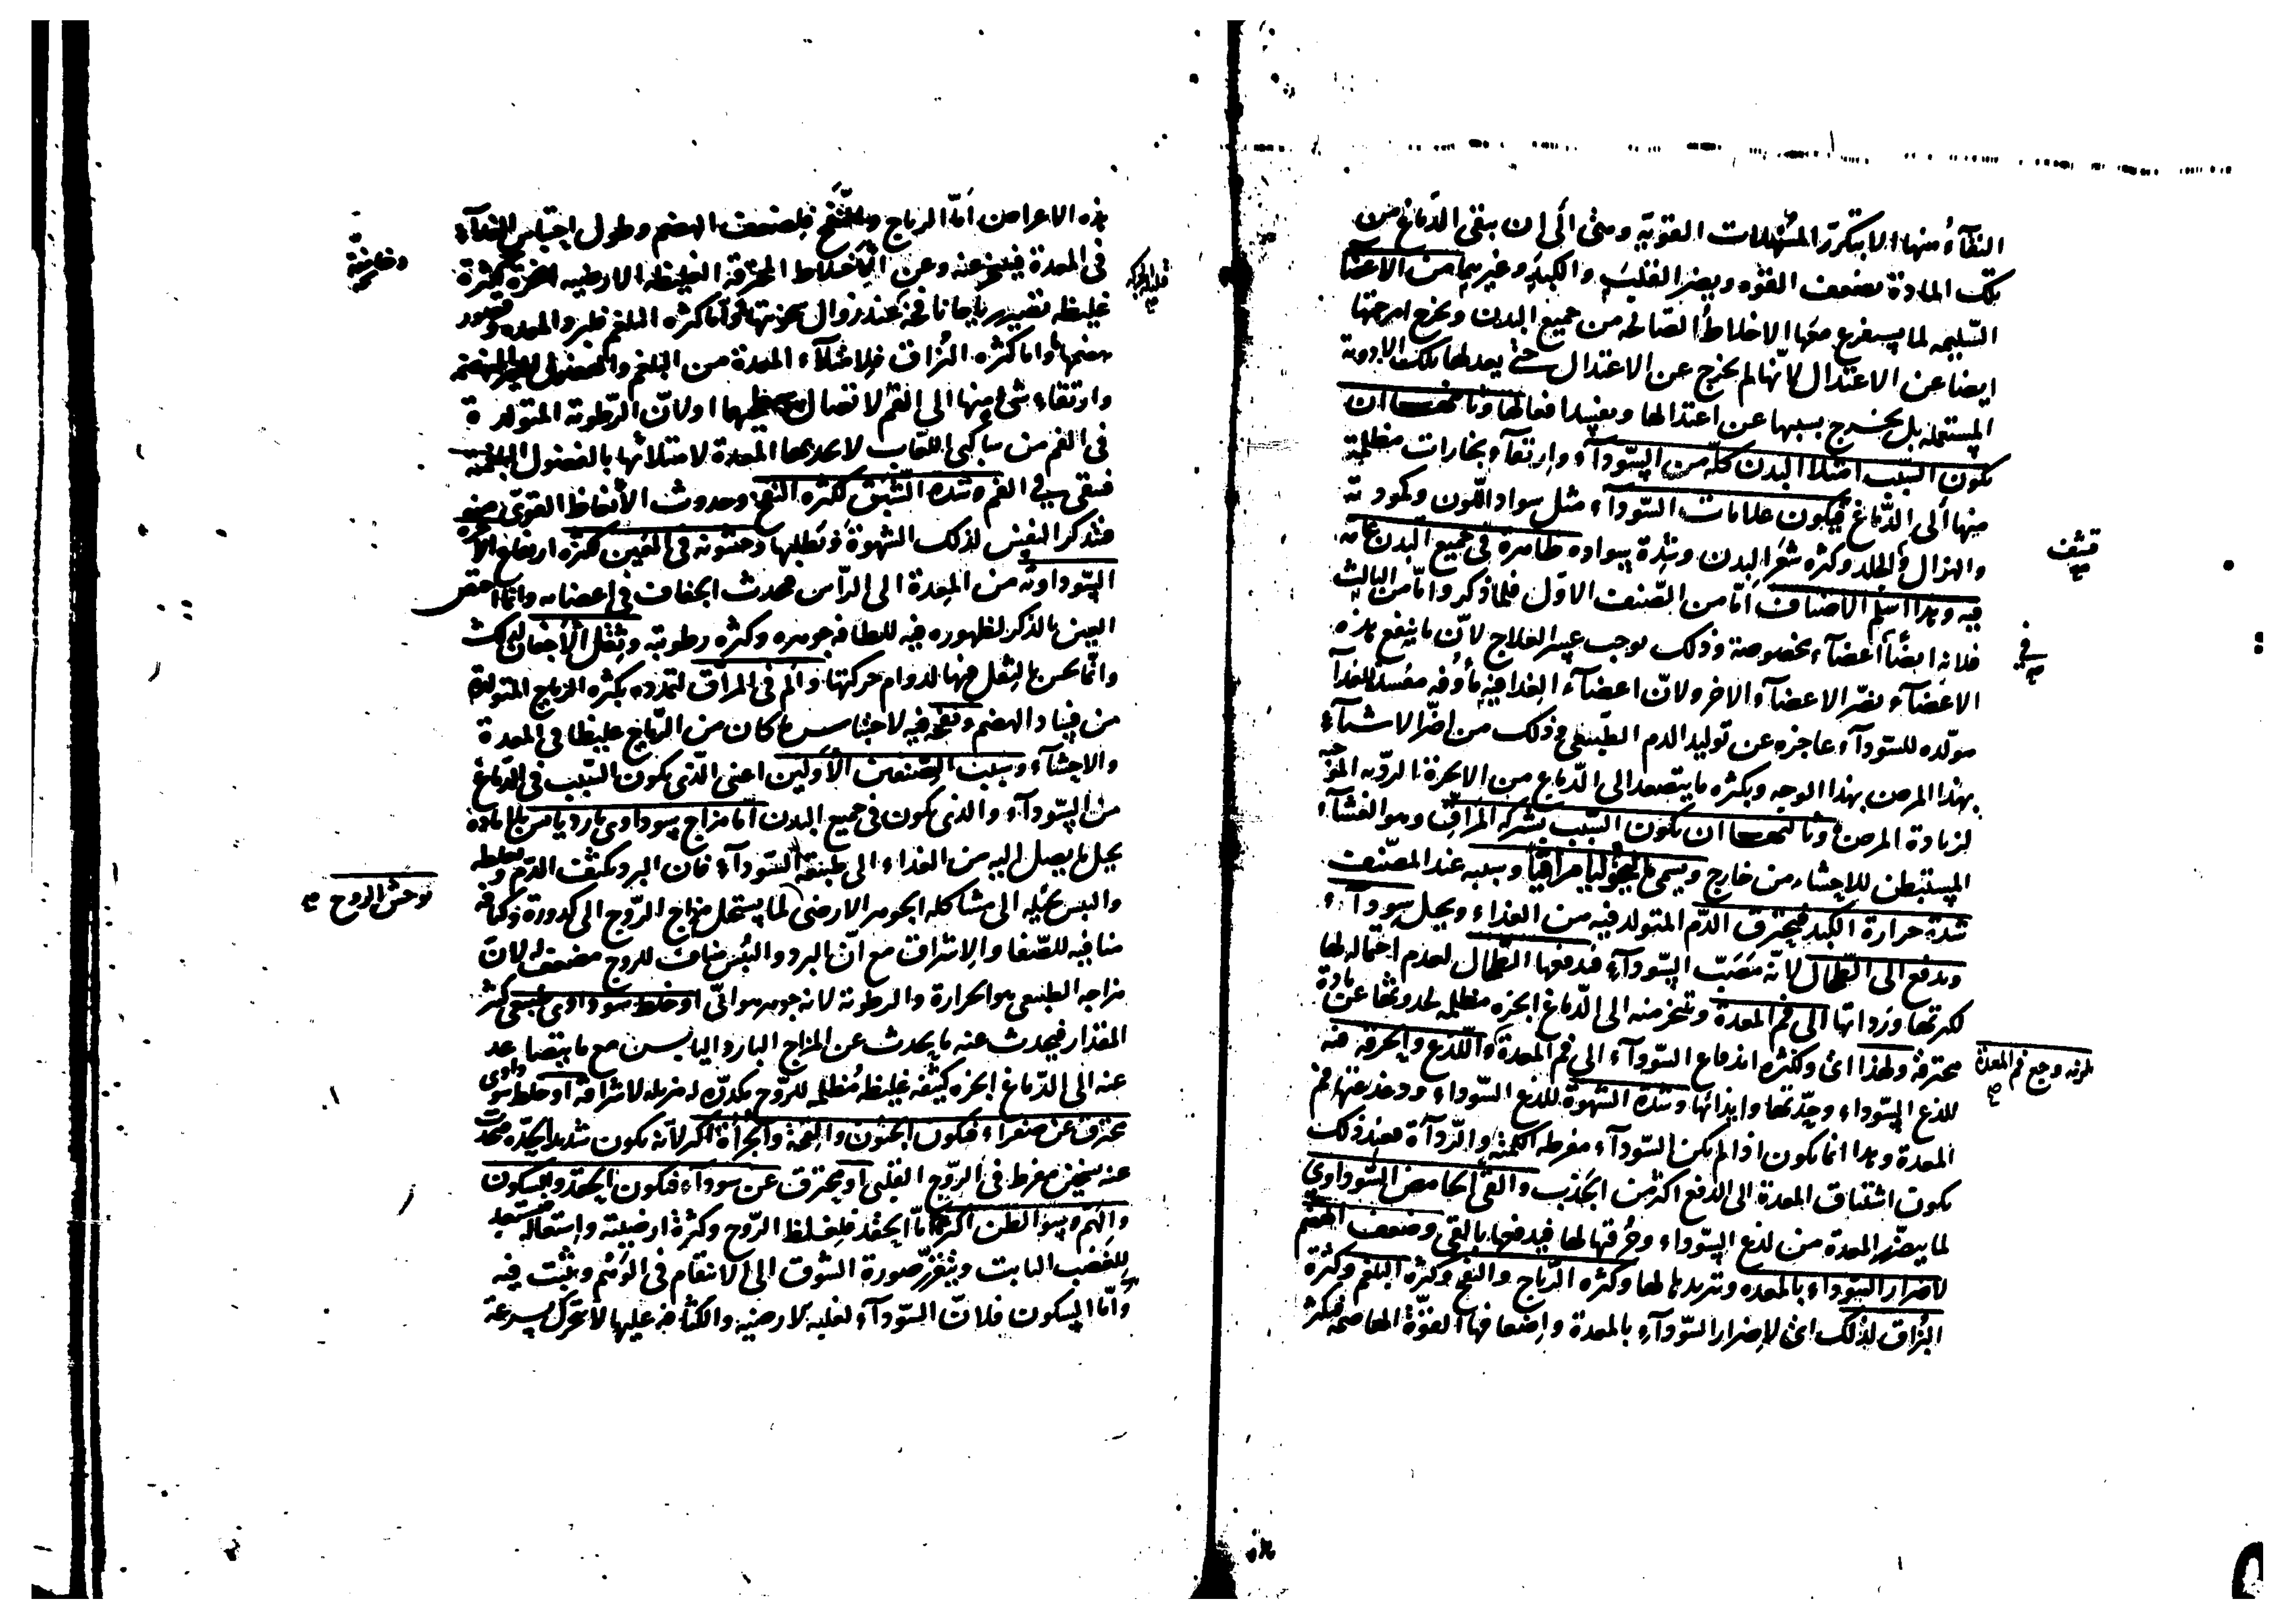 النقآء منها الا بتكرر المسهلات القوية ومتى الى ان يبقى الدماغ من
تلك المادة تضعف القوه ويضر القلب والكبد وغيرهما من الاعضآ
السليمه لما يستفرغ معها الاخلاط الصالحه من جميع البدن ويخرج امزجتها
ايضا عن الاعتدال لانها لم يخرج عن الاعتدال حتى يعدلها تلك الادوية
المستعمله بل يخرج بسببها عن اعتدالها ويفسد افعالها وثانيهما ان
يكون السبب امتلا البدن كله من السودآء وارتقآء بخارات مظلمة
منها الى الدماغ فيكون علامات السودآء مثل سواد اللون وكمودته
والهزال والجلد وكثره شعر البدن وشدة سواده ظاهرة فى جميع البدن عامه
فيه وهذا اسلم الاصناف امّا من الصنف الاول فلما ذكر واما من الثالث
فلانه ايضا اعضآء مخصوصة وذلك يوجب عسر العلاج لان ما ينفع هذه
الاعضآء يضر الاعضآء الاخر ولان اعضآء الغدا فيه مأوفه مفسدة للغدآ
مولده للسودآء عاجزه عن توليد الدم الطبيعى وذلك من اضر الاشيآء
بهذا المرض بهذا الوجه وبكثره ما يتصعد الى الدماغ من الابخرة الرديه الموجبه
لزيادة المرض وثالثها ان يكون السبب بشركه المراق وهو الغشآء
المستبطن للاحشاء من خارج ويسمى ماليخوليا مراقيا وسببه عند المصنف
شدة حرارة الكبد فيحترق الدم المتولد فيه من الغذاء ويحيل سودآء
ويدفع الى الطحال لانه مصب السودآء فدفعها الطحال لعدم احتماله لها
لكثرتها ورداتها الى فم المعدة وتبخر منه الى الدماغ ابخره مظلمه لحدوثها عن مادة
محترقه ولهذا اى ولكثره اندفاع السودآء الى فم المعدة واللذع والحرقه فيه
للذع السوداء وحدتها وايذائها وشدة الشهوة للذع السوداء ودغدغتها فم
المعدة وهذا انما يكون اذا لم يكن السودآء مفرطه الكمية والردآءة فعند ذلك
يكون اشتياق المعدة الى الدفع اكثر من الجذب والقئ الحامض السوداوي
لما يتضرر المعدة من لذع السوداء وحرقتها لها فيدفعها بالقى وضعف الهضم
لاضرار السوداء بالمعده وتبريدها لها وكثره الرياح والنفخ وكثره البلغم وكثرة
البزاق لذلك اى لاضرار السودآء بالمعدة واضعافها القوة الهاضمه فيكثر
قشف
فى
المعدة وجع فم المعدة
هذه الاعراض امّا الرياح والنفخ فلضعف الهضم وطول احتباس الغذآء
فى المعدة فيتبخر عنه وعن الاخلاط المحترقة الغليظه الارضيه ابخرة كثيرة
غليظه تصير رياحا نافخه عند زوال سخونتها واما كثره البلغم فلبرد المعده وقصور
هضمها واما كثره البزاق فلامتلآء المعدة من البلغم والفضول الغير المنهضمة
وارتقاء شئ منها الى الفم لاتصال سطحيهما او لان الرطوبة المتولدة
فى الفم من ساكبى اللعاب لا يجذبها المعدة لامتلائها بالفضول البلغمية
فيبقى فى الفم وشدة الشبق لكثره النفخ وحدوث الانعاظ القوى منه
فتذكر النفس لذلك الشهوة وتطلبها وخشونه فى العين لكثره ارتفاع الابخرة
السوداوية من المعدة الى الراس فيحدث الجفاف فى اعضايه وانما اختص
العين بالذكر لظهوره فيه للطافه جوهره وكثره رطوبته وثقل الاجفان لذلك
وانما يحس بالثقل فيها لدوام حركتها والم فى المراق لتمدده بكثره الرياح المتولدة
من فساد الهضم ونفخه فيه لاحتباس ما كان من الرياح غليظا فى المعدة
والاحشآء وسبب الصنفين الأولين اعنى الذى يكون السبب فى الدماغ
من السودآء والذى يكون فى جميع البدن اما مزاج سوداوى بارد يابس بلا مادة
يحيل ما يصل اليه من الغذاء الى طبيعة السودآء فان البرد يكثف الدم ويغلظه
واليبس يحيله الى مشاكله الجوهر الارضى لما يستحيل مزاج الروح الى كدورة وكثافه
منافيه للصفا والاشراق مع ان البرد واليبس مناف للروح مضعف له لان
مزاجه الطبيعى هو الحرارة والرطوبة لانه جوهر هوائى او خلط سوداوى طبيعى كثير
المقدار فيحدث عنه ما يحدث عن المزاج البارد اليابس مع ما يتصاعد
عنه الى الدماغ ابخره كثيفه غليظه مظلمه للروح مكدره له مزيله لاشراقه او خلط سوداوى
محترق عن صفراء فيكون الجنون والتحمة والجرأة اكثر لانه يكون شديد الحدة يحدث
عنه تسخين مفرط فى الروح القلبى او محترق عن سودآء فيكون الحقد والسكون
والهم وسوء الظن اكثر امّا الحقد فلغلظ الروح وكثرة ارضيته واستعماله مستعد
للغضب الثابت ويتقرر صورة الشوق الى الانتقام فى الوهم ويثبت فيه
وأما السكون فلان السودآء لغلبه الارضيه والكثافه عليها لا تتحرك بسرعة
قليله الحركه
توحش الروح